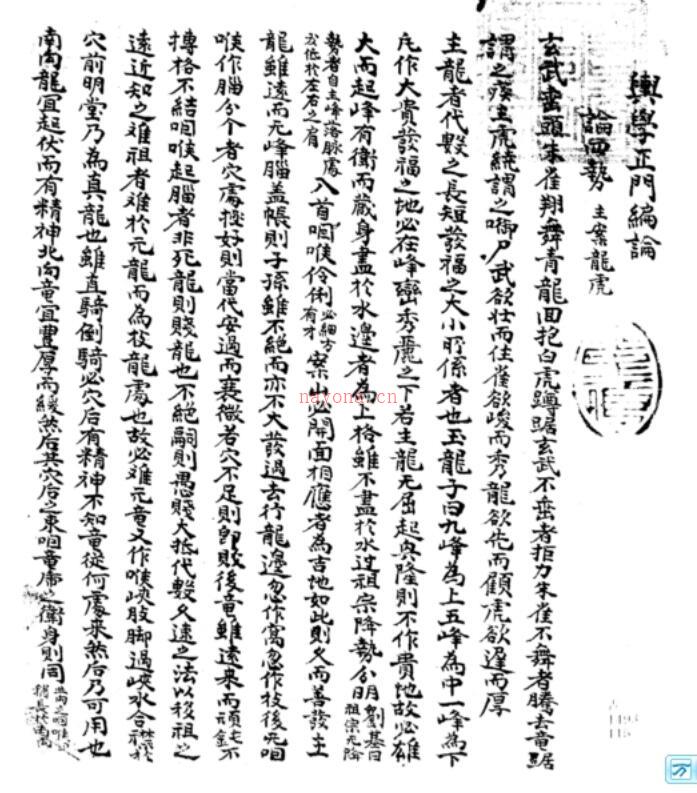 輿學正門編論
論四勢 主案龍虎
玄武垂頭朱雀翔舞青龍回抱白虎蹲踞玄武不垂者拒尸朱雀不舞者騰去竜踞
謂之 主虎繞謂之啣尸武欲壮而住雀欲峻而秀龍欲先而顧虎欲遲而厚
主龍者代數之長短發福之大小所係者也玉龍子曰九峰為上五峰為中一峰為下
凡作大貴發福之地必在峰巒秀麗之下若主龍无屈起興隆則不作貴地故必雄
大而起峰有衛而藏身盡於水邊者為上格雖不盡於水过祖宗降勢分明劉基曰祖宗无降
勢者自主峰落脉處 低於左右之肩入首咽喉伶俐必細方有才案山必開面相應者為吉地如此則久而善發主
龍雖遠而无峰腦盖帳則子孫雖不絶而亦不大發過去行龍邊忽作窩忽作枝後无咽
喉作腦分个者穴處擾好則當代安過而衰微若穴不足則卽敗後竜雖遠來而頑鈍不
摶格不結咽喉起腦者非死龍則賤龍也不絶嗣則愚賤大抵代數久速之法以移祖之
遠近知之难祖者难於元龍而為枝龍處也故必难元竜又作喉峽肢脚過峽水合襟於
穴前明堂乃為真龍也雖直騎倒騎必穴后有精神不知竜從何處来然后乃可用也
南向龍宜起伏而有精神北向竜宜豊厚而緩然后其穴后之束咽竜虎之衛身則同
nayona.cn